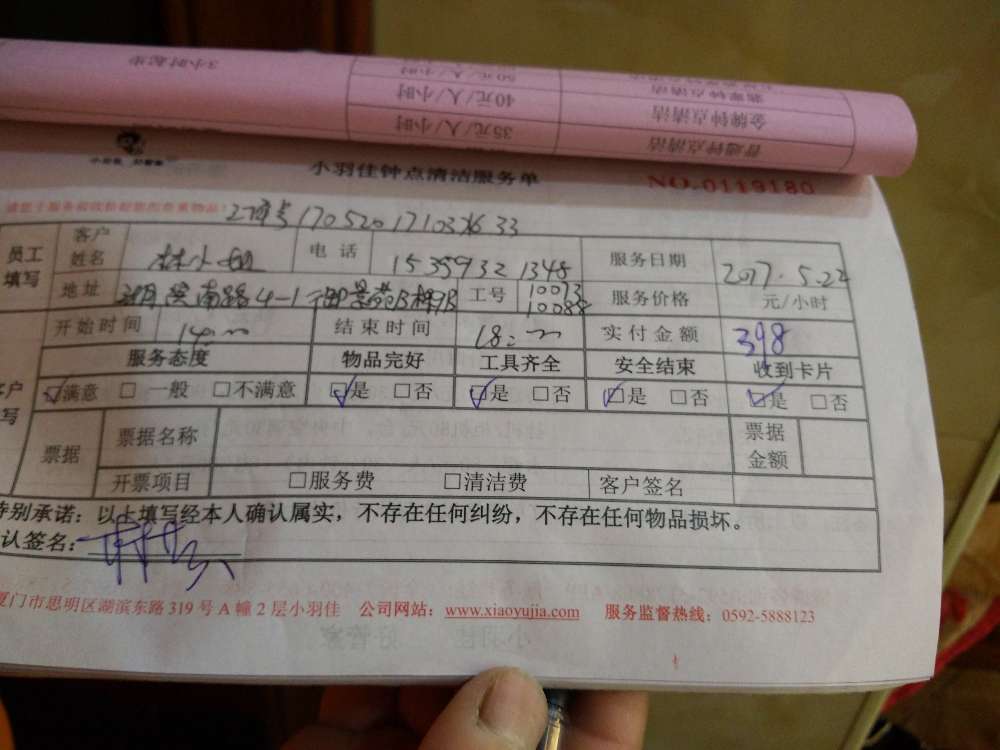 3小时起步
50元/人/小时
40元/人/小时 金牌钟点清洁
35元/人/小时 普通钟点清洁
小羽佳钟点清洁服务单 NO.0119180
员工填写 客户姓名 林小姐 电话 15359321348 服务日期 2017.5.22
地址 湖滨南路4-1御景苑B梯 工号 10073 10088 服务价格 元/小时
开始时间 14: 结束时间 18: 实付金额 398
服务态度 物品完好 工具齐全 安全结束 收到卡片
☑满意 □一般 □不满意 ☑是 □否 ☑是 □否 ☑是 □否 ☑是 □否
票据 票据名称 票据金额
开票项目 □服务费 □清洁费 客户签名
特别承诺：以上填写经本人确认属实，不存在任何纠纷，不存在任何物品损坏。
认签名：
厦门市思明区湖滨东路319号A幢2层小羽佳 公司网站：www.xiaoyujia.com 服务监督热线：0592-5888123